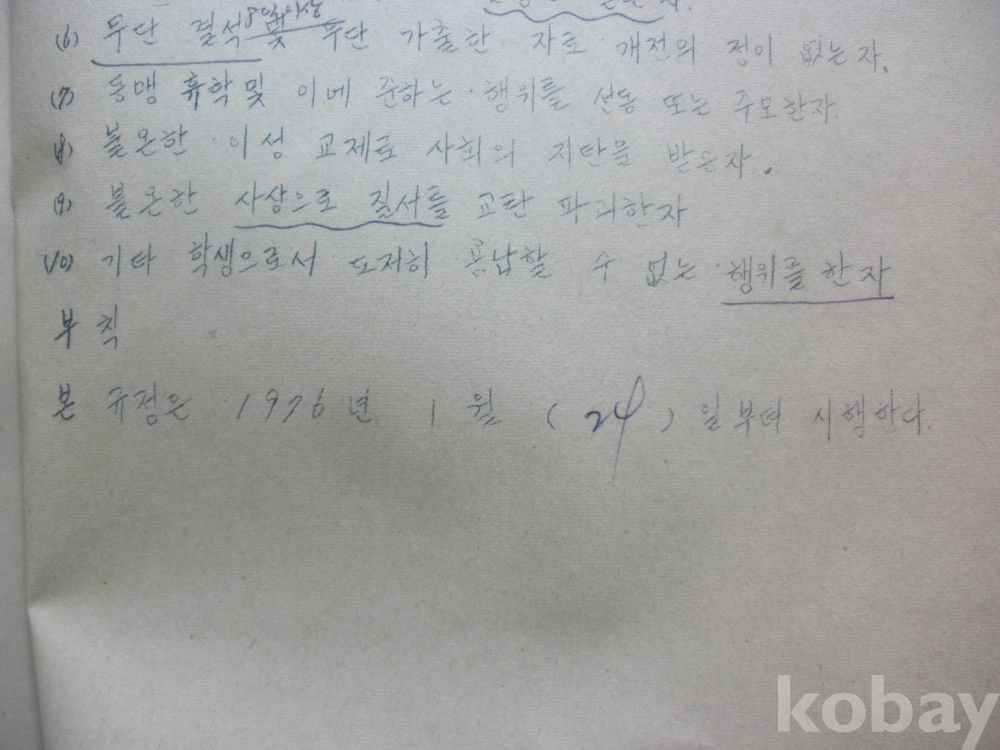 8일이상
(6) 무단 결석 및 무단 가출한 자로 개전의 정이 없는자.
(7) 동맹 휴학및 이에 준하는 행위를 선동 또는 주모한자.
(8) 불온한 이성 교제로 사회의 지탄을 받은자.
(9) 불온한 사상으로 질서를 교란 파괴한자
(10) 기타 학생으로서 도저히 용납할 수 없는 행위를 한 자
부칙
본 규정은 1976년 1월 (24) 일부터 시행한다.
kobay